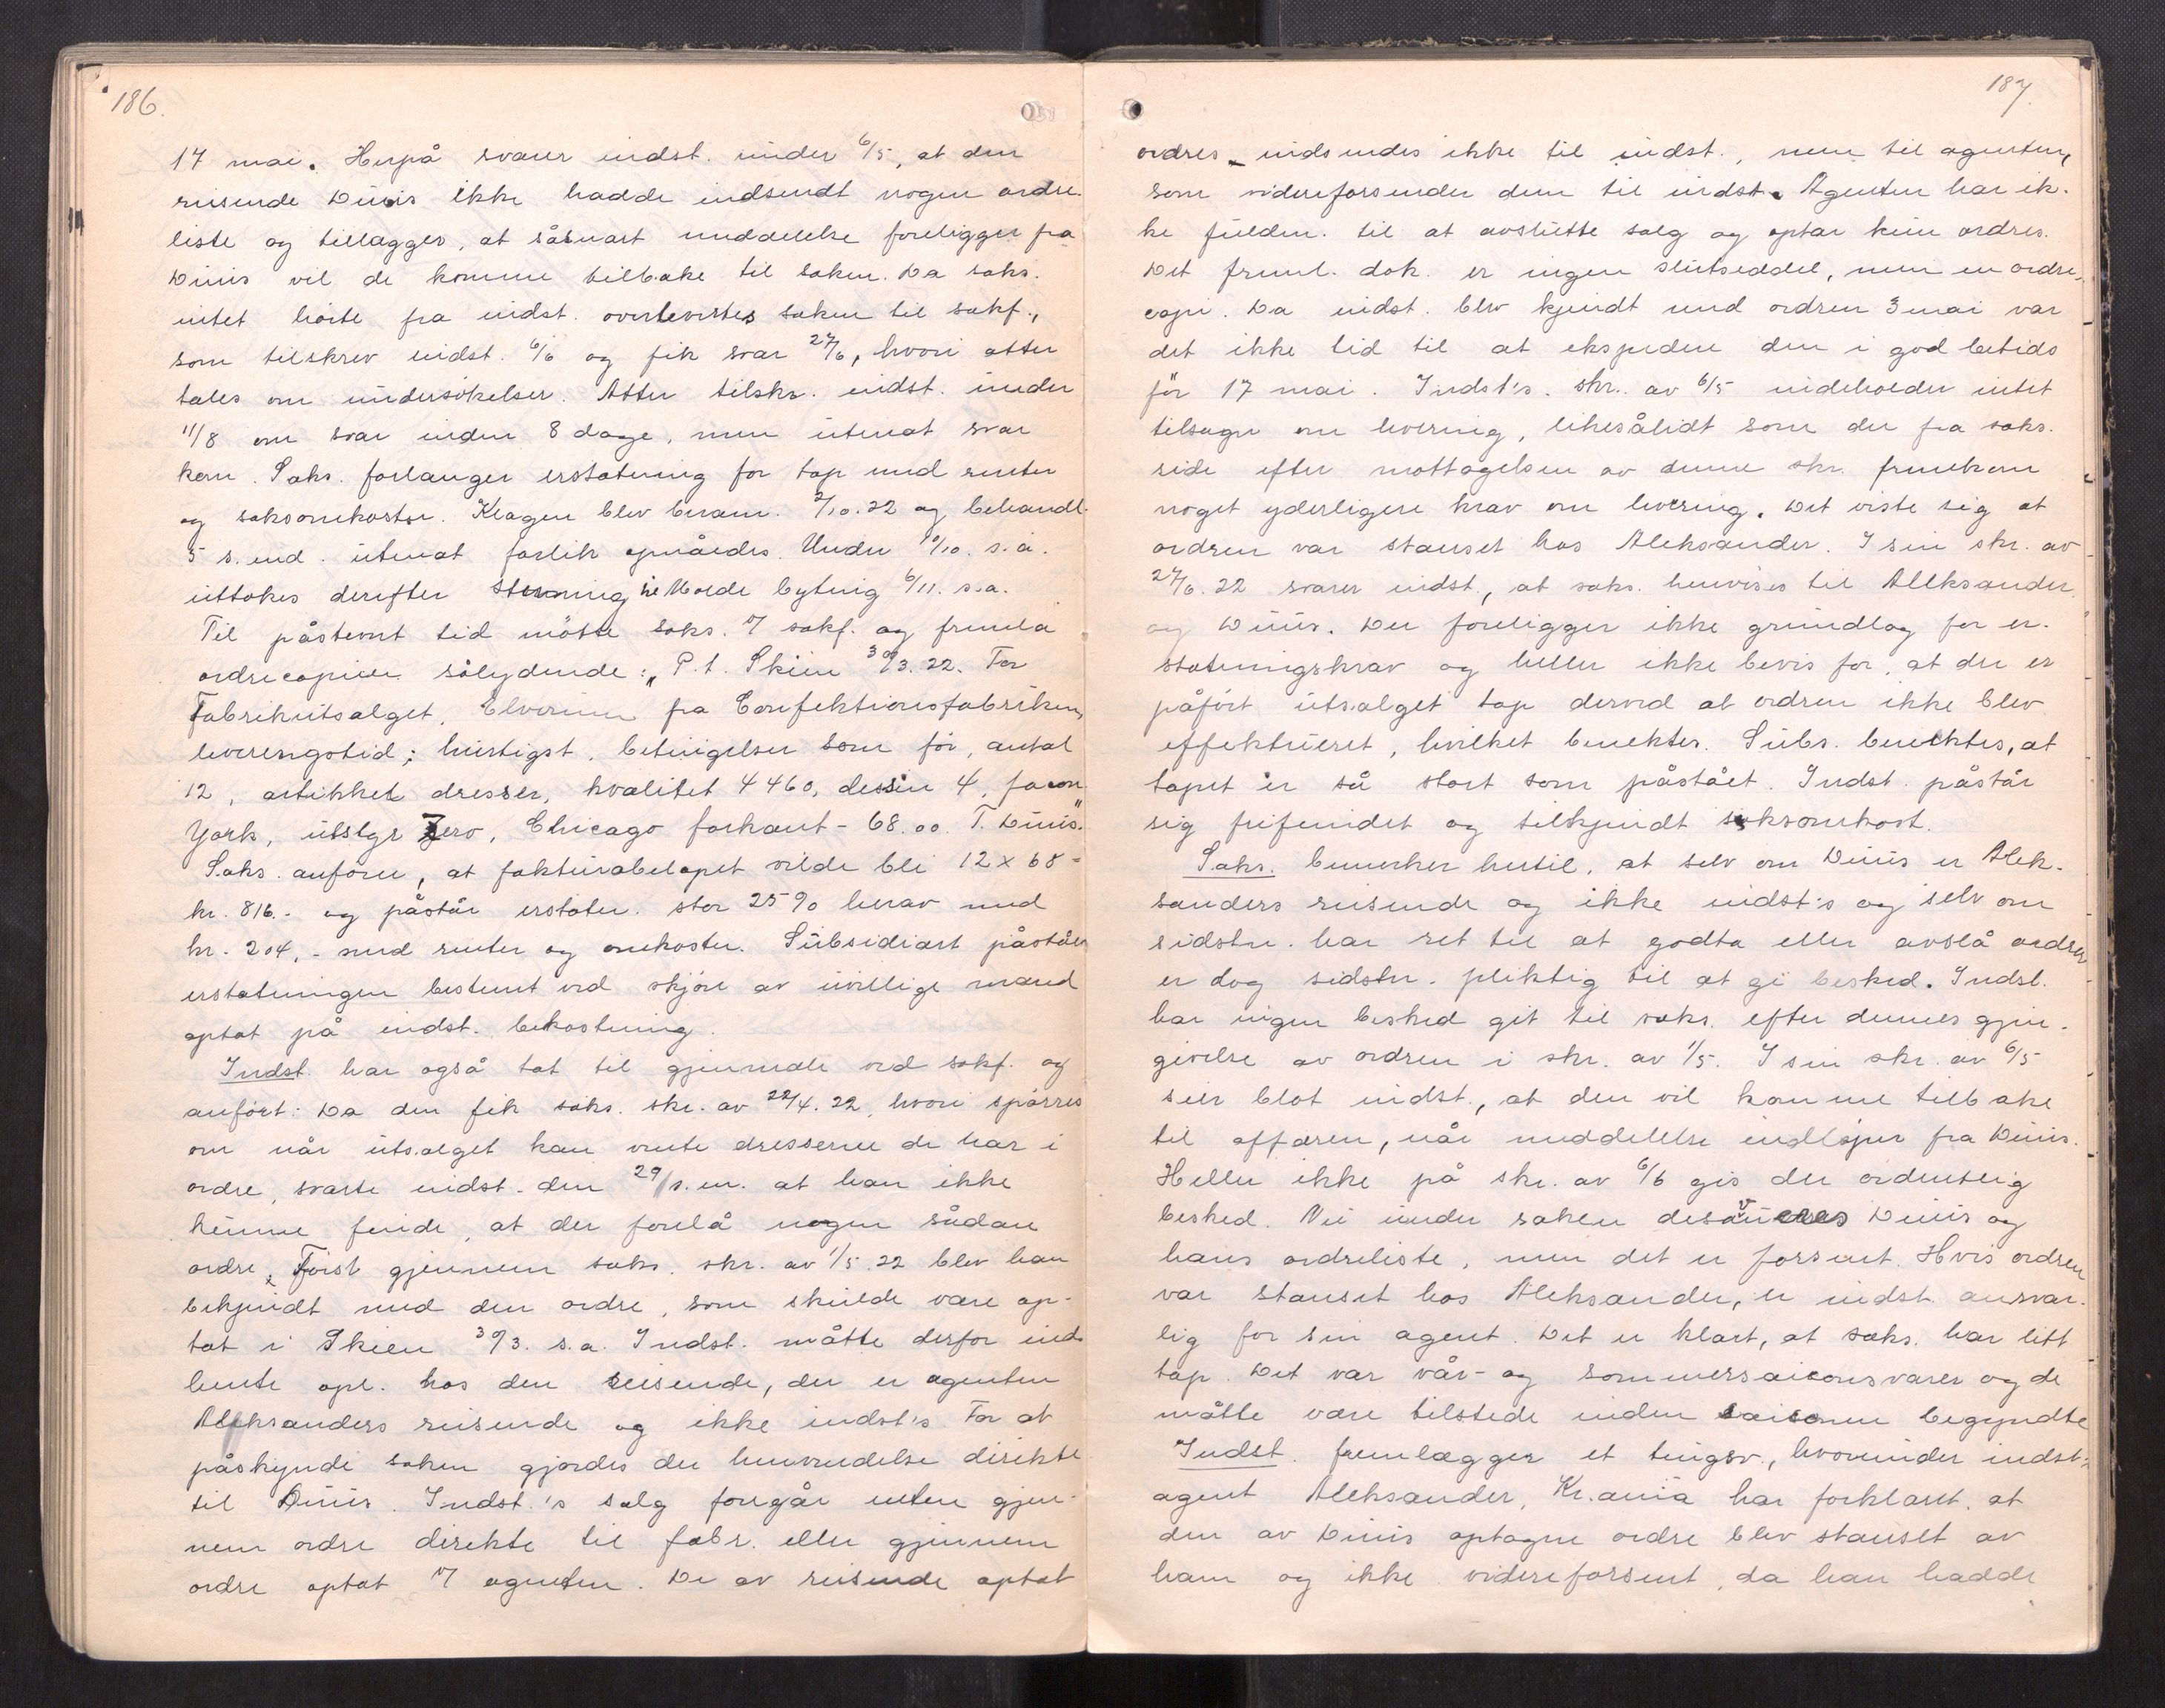 186.
17 mai. Herpå svarer indst. under 6/5, at den
reisende Duus ikke hadde indsendt nogen ordre-
liste og tillægger, at såsnart meddelelse foreligger fra
Duus vil de komme tilbake til saken. Da saks.
intet hörte fra indst. overlevertes saken til sakf.,
som tilskrev indst. 6/6 og fik svar 27/6, hvori atter
tales om undersökelser. Atter tilskr. indst. under
11/8 om svar inden 8 dage, men utenat svar
kom. Saks. forlanger erstatning for tap med renter
og saksomkostn. Klagen blev beram. 2/10.22 og behandl.
5 s.md. utenat forlik opnåedes. Under 10/10. s.å.
uttokes derefter stevning til Molde bytting 6/11. s.a.
Til påstevnt tid mötte saks. v/ sakf. og fremla
ordrecopien sålydende: "P.t. Skien 30/3.22. For
Fabrikutsalget, Elverum fra Confektionsfabriken,
leveringstid: hurtigst, betingelser som för, antal
12, artikkel dresser, kvalitet 4460, dessin 4, facon
York, utstyr Zero, Chicago forkant - 68.00 T. Duus."
Saks. anförer, at fakturabelöpet vilde bli 12 x 68 =
kr. 816.- og påstår erstatn. stor 25% herav med
kr. 204,- med renter og omkostn. Subsidiært påståes
erstatningen bestemt ved skjön av uvillige mænd
optat på indst. bekostning.
Indst. har også tat til gjenmæle ved sakf. og
anfört: Da den fik saks. skr. av 22/4.22, hvori spörres
om når utsalget kan vente dresserne de har i
ordre, svarte indst. den 29/s.m. at han ikke
kunne finde, at der forelå nogen sådan
ordre. Först gjennem saks. skr. av 1/5.22 blev han
bekjendt med den ordre, som skulde være op-
tat i Skien 30/3. s.a. Indst. måtte derfor ind-
hente opl. hos den reisende, der er agenten
Aleksanders reisende og ikke indst's. For at
påskynde saken gjordes der henvendelse direkte
til Duus. Indst.'s salg foregår enten gjen-
nem ordre direkte til fabr. eller gjennem
ordre optat v/ agenten. De av reisende optat
187.
ordres indsendes ikke til indst., men til agenten,
som videreforsender dem til indst. Agenten har ik-
ke fuldm. til at avslutte salg og optar kun ordres.
Det freml. dok. er ingen slutseddel, men en ordre-
copi. Da indst. blev kjendt med ordren 3 mai var
det ikke tid til at ekspedere den i god betids
för 17 mai. Indst's. skr. av 6/5 indeholder intet
tilsagn om levering, likesålidt som der fra saks.
side efter mottagelsen av denne skr. fremkom
noget yderligere krav om levering. Det viste sig at
ordren var stanset hos Aleksander. I sin skr. av
27/6.22 svarer indst., at saks. henvises til Aleksander
og Duus. Der foreligger ikke grundlag for er-
statningskrav og heller ikke bevis for, at der er
påfört utsalget tap derved at ordren ikke blev
effektueret, hvilket benektes. Subs. benektes, at
tapet er så stort som påstået. Indst. påstår
sig frifundet og tilkjendt saksomkost.
Saks. bemerker hertil, at selv om Duus er Alek-
sanders reisende og ikke indst:s og selv om
sidstn. har ret til at godta eller avslå ordren
er dog sidstn. pliktig til at gi besked. Indst.
har ingen besked git til saks. efter dennes gjen-
givelse av ordren i skr. av 1/5. I sin skr. av 6/5
sier blot indst., at den vil komme tilbake
til affæren, når meddelelse indlöper fra Duus.
Heller ikke på skr. av 6/6 gis der ordentlig
besked. Nu under saken desavueres Duus og
hans ordreliste, men det er forsent. Hvis ordren
var stanset hos Aleksander, er indst. ansvar-
lig for sin agent. Det er klart, at saks. har litt
tap. Det var vår- og sommersaiconsvarer og de
måtte være tilstede inden saisonen begyndte
Indst. fremlægger et tingsv., hvorunder indst:s
agent Aleksander, Kr.ania har forklaret, at
den av Duus optagne ordre blev stanset av
ham og ikke videreforsent, da han hadde